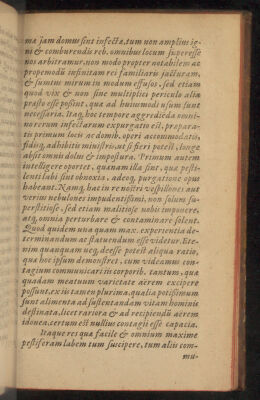 ma jam domus sint infecta, tum non amplius ig-
ni & comburendis reb. omnibus locum superesse
nos arbitramur, non modo propter notabilem ac
propemodū infinitam rei familiaris jacturam,
& sumtus mirum in modum effusos, sed etiam
quod vix & non sine multiplici periculo alia
præsto esse possint, quæ ad hujusmodi usum sunt
necessaria. Itaq, hoc tempore aggredienda omni-
no rerum infectarum expurgatio est, prepara-
tis primum locis ac domib. operi accommodatis,
fidisq, adhibitis ministris, ut si fieri potest, longe
absit omnis dolus & impostura. Primum autem
intelligere oportet, quænam illa sint, quæ pesti-
lenti labi sint obnoxia, adeoq, purgatione opus
habeant. Namq, hac in re nostri vespillones aut
verius nebulones impudentissimi, non solum su-
perstitiose, sed etiam malitiose nobis imponere,
atq, omnia perturbare & contaminare solent.
Quod quidem una quam max. experientia de-
terminandum ac statuendum esse videtur. Ete-
nim quanquam neq, deesse potest aliqua ratio,
quæ hoc ipsum demonstret, cum videamus con-
tagium communicari iis corporib. tantum, quæ
quadam meatuum varietate aërem excipere
possunt, ex iis tamen plurima, qualia potissimum
sunt alimenta ad sustentandam vitam hominis
destinata, licet rariora & ad recipiendū aërem
idonea, certum est nullius contagii esse capacia.
Itaque res quæ facile & omnium maxime
pestiferam labem tum suscipere, tum aliis com-
mu-